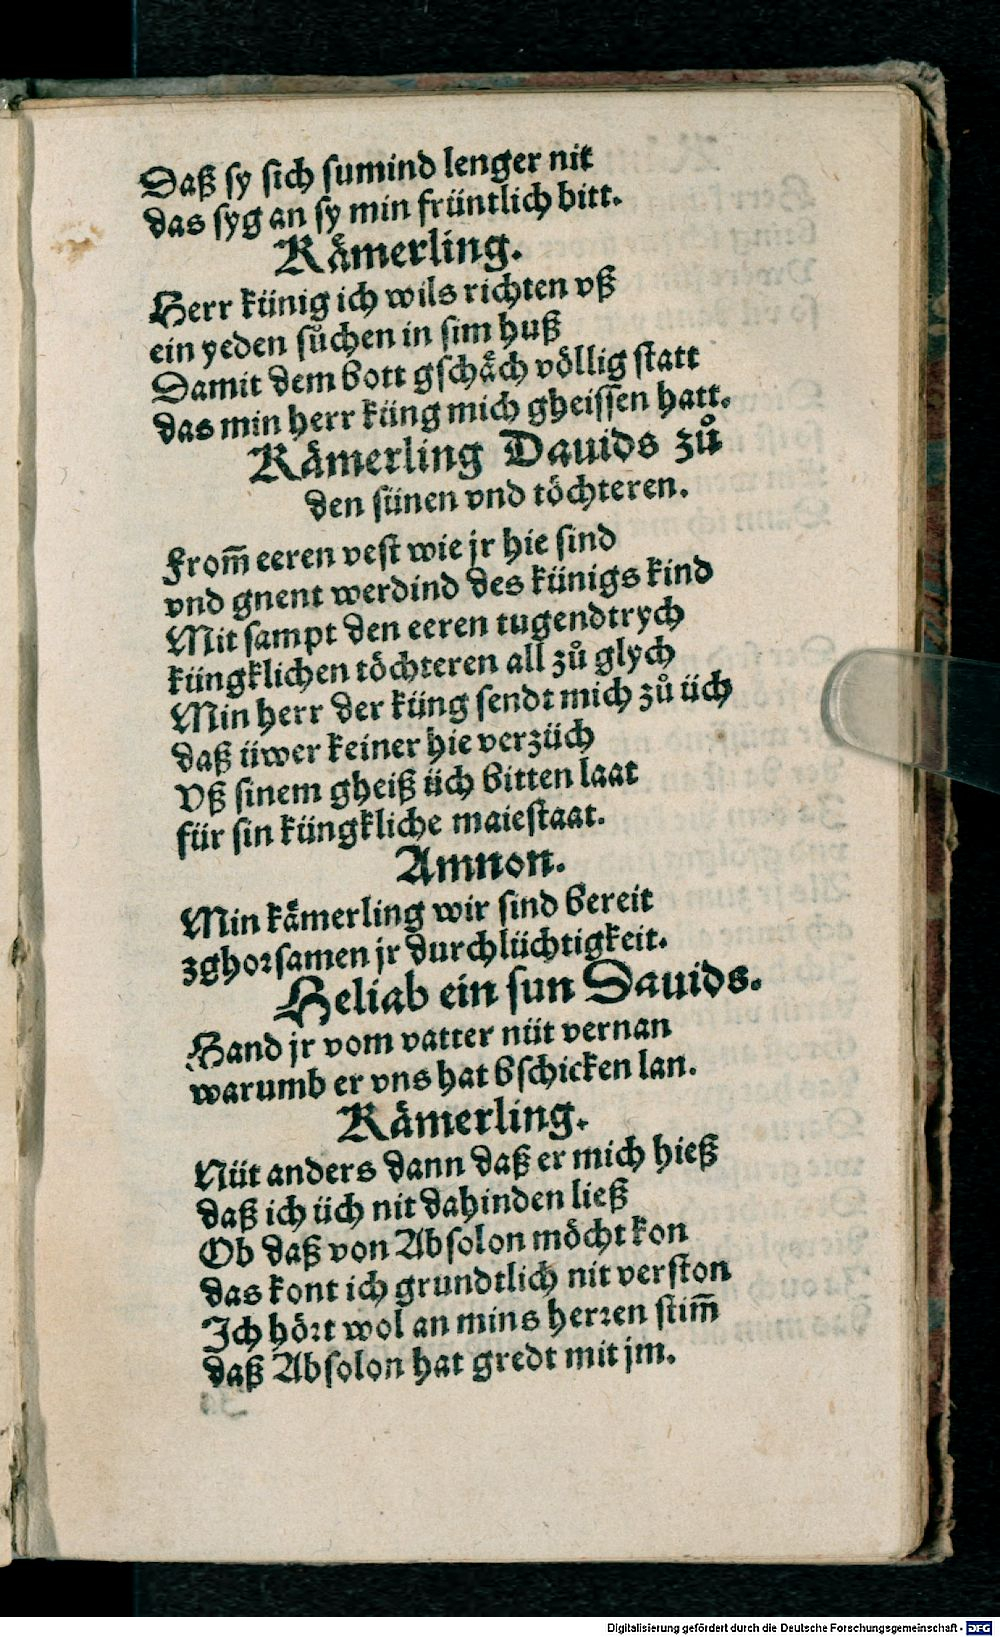 Daß sy sich sumind lenger nit
das syg an sy min früntlich bitt.
Kämerling.
Herr künig ich wils richten vß
ein yeden sůchen in sim huß
Damit dem bott gschäch völlig statt
das min herr küng mich gheissen hatt.
Kämerling Dauids zů
den sünen vnd töchteren.
From̄ eeren vest wie jr hie sind
vnd gnent werdind des künigs kind
Mit sampt den eeren tugendtrych
küngklichen töchteren all zů glych
Min herr der küng sendt mich zů üch
daß üwer keiner hie verzüch
Vß sinem gheiß üch bitten laat
für sin küngkliche maiestaat.
Amnon.
Min kämerling wir sind bereit
zghorsamen jr durchlüchtigkeit.
Heliab ein sun Dauids.
Hand jr vom vatter nüt vernan
warumb er vns hat bschicken lan.
Kämerling.
Nüt anders dann daß er mich hieß
daß ich üch nit dahinden ließ
Ob daß von Absolon möcht kon
das kont ich grundtlich nit verston
Ich hört wol an mins herren stim̄
daß Absolon hat gredt mit jm.
Digitalisierung gefördert durch die Deutsche Forschungsgemeinschaft - DFG